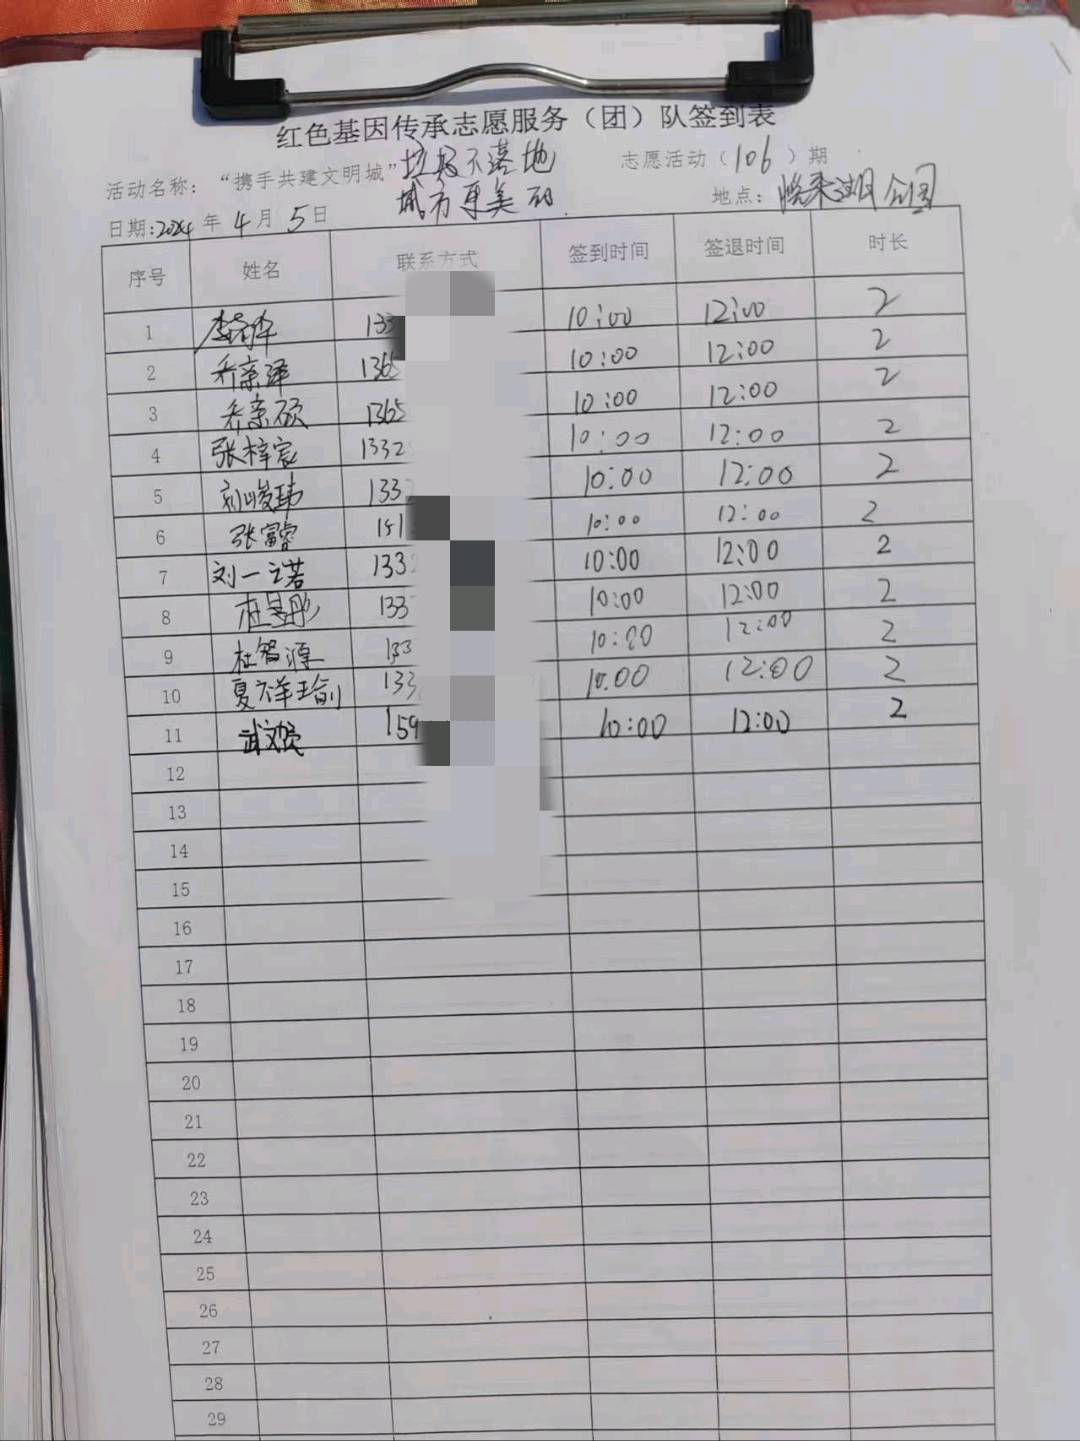 红色基因传承志愿服务（团）队签到表
活动名称：“携手共建文明城”垃圾不落地 志愿活动（106）期
城市更美丽
日期：2024年4月5日 地点：公园
序号 姓名 联系方式 签到时间 签退时间 时长
1 133 10:00 12:00 2
2 乔亲泽 1365 10:00 12:00 2
3 乔亲硕 1365 10:00 12:00 2
4 张梓宸 1332 10:00 12:00 2
5 刘峻玮 133 10:00 12:00 2
6 张富睿 151 10:00 12:00 2
7 刘一诺 133 10:00 12:00 2
8 133 10:00 12:00 2
9 杜智源 133 10:00 12:00 2
10 夏祥瑜 133 10:00 12:00 2
11 159 10:00 12:00 2
12
13
14
15
16
17
18
19
20
21
22
23
24
25
26
27
28
29